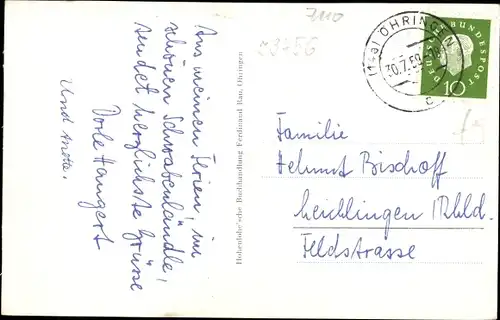 Aus meinen Ferien, im
schönen Schwabenländle,
sendet herzlichste Grüsse
Dorle Hangert
Und Mutti.
Hohenlohe'sche Buchhandlung Ferdinand Rau, Öhringen
7110
(14a) ÖHRINGEN
30.7.59
c
DEUTSCHE BUNDESPOST
10
Familie
Helmut Bischoff
Leichlingen / Rhld.
Feldstrasse